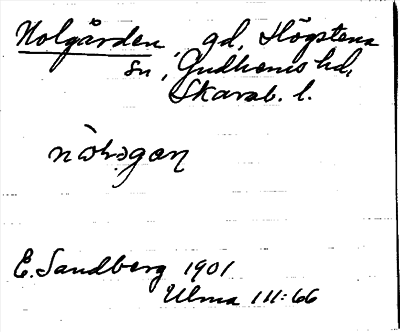 Nolgården, gd, Högstena
sn, Gudhems hd,
Skarab. l.
E. Sandberg 1901
Ulma 111:66